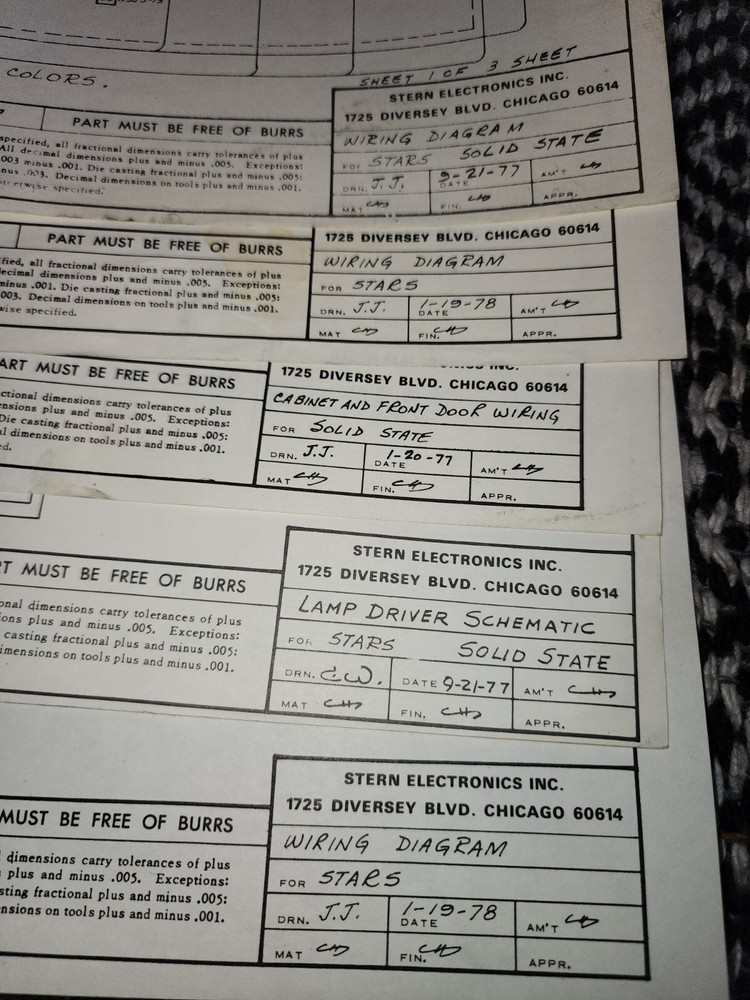 COLORS.
SHEET 1 OF 3 SHEET
STERN ELECTRONICS INC.
1725 DIVERSEY BLVD. CHICAGO 60614
PART MUST BE FREE OF BURRS
WIRING DIAGRAM
specified, all fractional dimensions carry tolerances of plus
All decimal dimensions plus and minus .005. Exceptions:
.003 minus .001. Die casting fractional plus and minus .005:
nus .003. Decimal dimensions on tools plus and minus .001.
otherwise specified.
FOR STARS SOLID STATE
DRN. J.J. 9-21-77 DATE AM'T
MAT FIN. APPR.
PART MUST BE FREE OF BURRS
1725 DIVERSEY BLVD. CHICAGO 60614
fied, all fractional dimensions carry tolerances of plus
decimal dimensions plus and minus .005. Exceptions:
minus .001. Die casting fractional plus and minus .005:
.003. Decimal dimensions on tools plus and minus .001.
wise specified.
WIRING DIAGRAM
FOR STARS
DRN. J.J. 1-19-78 DATE AM'T
MAT FIN. APPR.
ART MUST BE FREE OF BURRS
1725 DIVERSEY BLVD. CHICAGO 60614
ctional dimensions carry tolerances of plus
ensions plus and minus .005. Exceptions:
Die casting fractional plus and minus .005:
l dimensions on tools plus and minus .001.
ed.
CABINET AND FRONT DOOR WIRING
FOR SOLID STATE
DRN. J.J. 1-20-77 DATE AM'T
MAT FIN. APPR.
T MUST BE FREE OF BURRS
STERN ELECTRONICS INC.
1725 DIVERSEY BLVD. CHICAGO 60614
onal dimensions carry tolerances of plus
ions plus and minus .005. Exceptions:
casting fractional plus and minus .005:
imensions on tools plus and minus .001.
LAMP DRIVER SCHEMATIC
FOR STARS SOLID STATE
DRN. C.W. DATE 9-21-77 AM'T
MAT FIN. APPR.
STERN ELECTRONICS INC.
1725 DIVERSEY BLVD. CHICAGO 60614
MUST BE FREE OF BURRS
dimensions carry tolerances of plus
plus and minus .005. Exceptions:
sting fractional plus and minus .005:
nsions on tools plus and minus .001.
WIRING DIAGRAM
FOR STARS
DRN. J.J. 1-19-78 DATE AM'T
MAT FIN. APPR.